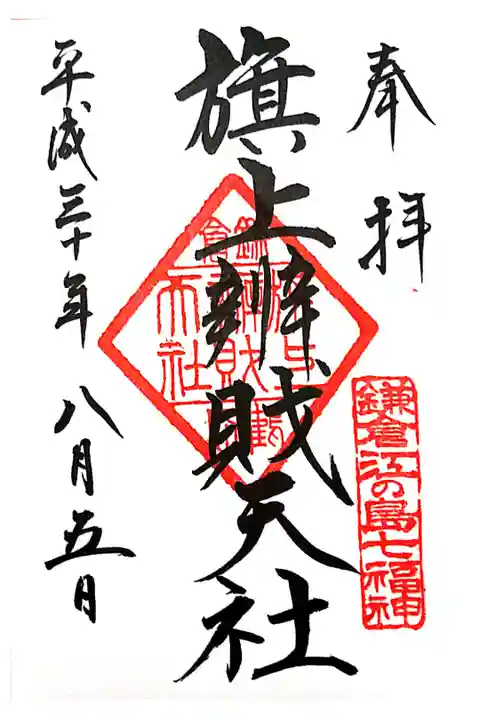 奉拝
鎌倉江の島七福神
旗上辨財天社
平成三十年八月五日